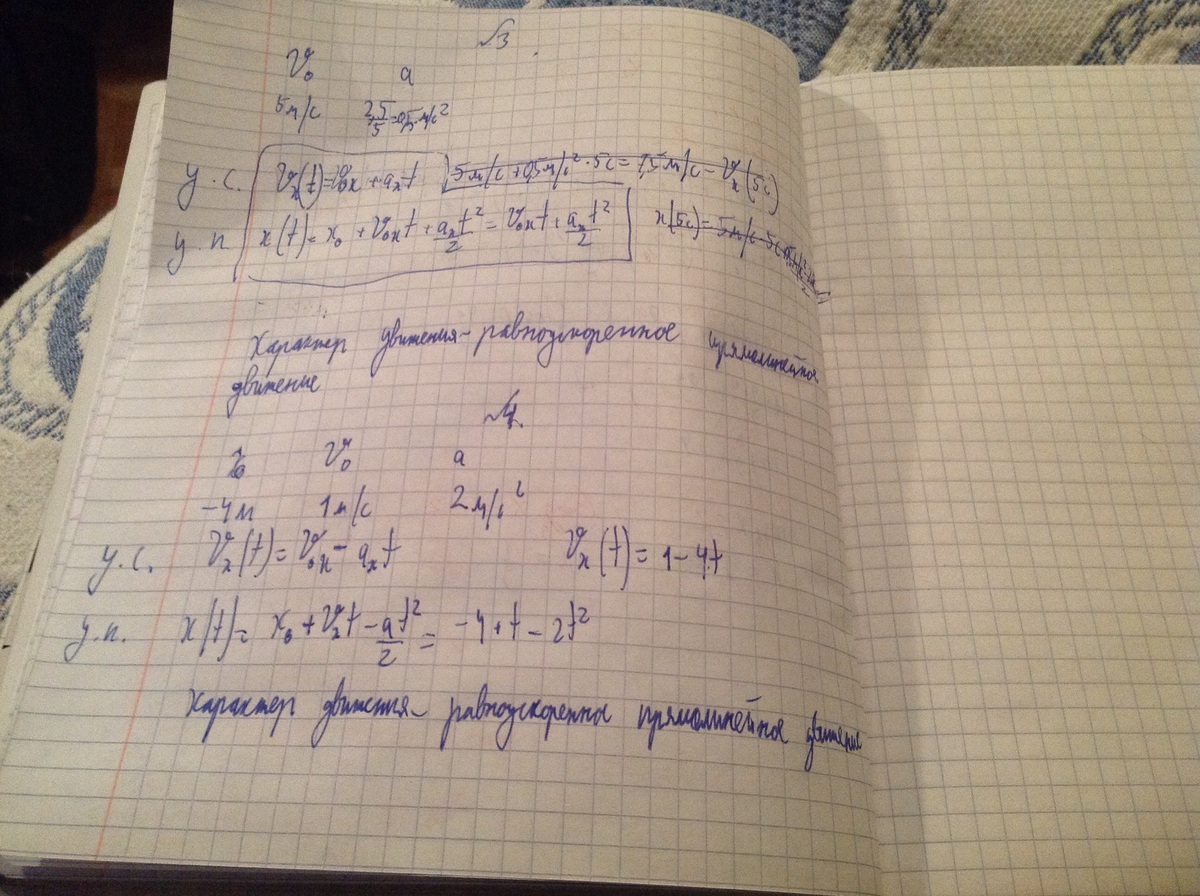 √3
V₀ a
5м/с 2,5/5=0,5м/с²
у.с. Vₓ(t)=V₀ₓ+aₓt 5м/с+0,5м/с²·5с=7,5м/с-Vₓ(5с)
у.п x(t)=x₀+V₀ₓt+aₓt²/2=V₀ₓt+aₓt²/2 x(5с)=5м/с·5с
Характер движения-равноускоренное прямолинейное
движение
√4
x₀ V₀ a
-4м 1м/с 2м/с²
у.с. Vₓ(t)=V₀ₓ-aₓt Vₓ(t)=1-4t
у.п. x(t)=x₀+Vₓt-at²/2=-4+t-2t²
Характер движения-равноускоренное прямолинейное движение